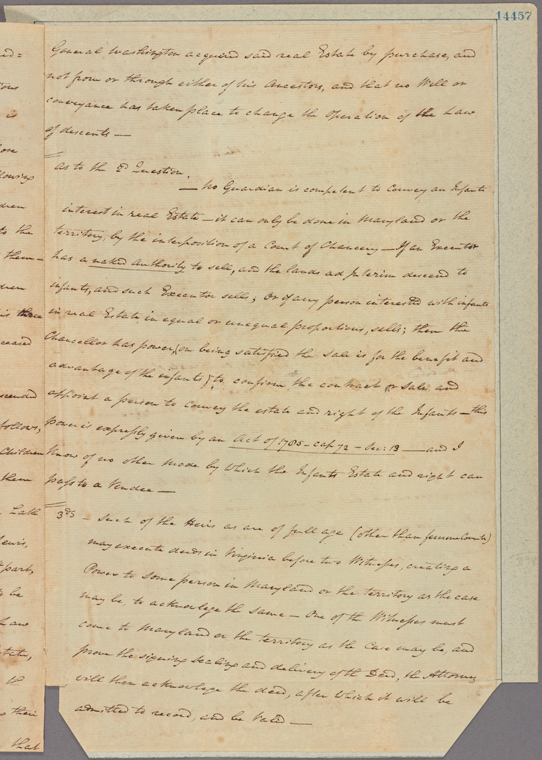 14457
General Washington acquired said real Estate by purchase, and
not from or through either of his Ancestors, and that no Will or
conveyance has taken place to change the Operation of the Law
of descents —
As to the 2d Question.
— No Guardian is competent to convey an Infants
interest in real Estate — it can only be done in Maryland or the
territory, by the interposition of a Court of Chancery — If an Executor
has a naked authority to sell, and the lands ad Interim descend to
infants, and such Executor sells; Or if any person interested with infants
in real Estate in equal or unequal proportions, sells; then the
Chancellor has power, (on being satisfied the sale is for the benefit and
advantage of the infants) to confirm the contract or sale, and
appoint a person to convey the estate and right of the Infants — this
power is expressly given by an Act of 1785 - cap. 72 - Sec: 13 — and I
know of no other mode by which the Infants Estate and right can
pass to a Vendee —
3d — Such of the Heirs as are of full age (other than femme Coverts)
may execute deeds in Virginia before two Witnesses, creating a
Power to some person in Maryland or the territory as the case
may be to acknowledge the same — One of the Witnesses must
come to Maryland or the territory as the Case may be, and
prove the signing sealing and delivery of the Deed, the Attorney
will then acknowledge the deed, after which it will be
admitted to record, and be Valid —